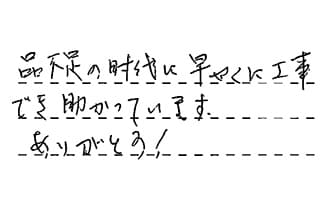 品不足の時代に早やくに工事
でき助かっています.
ありがとう!